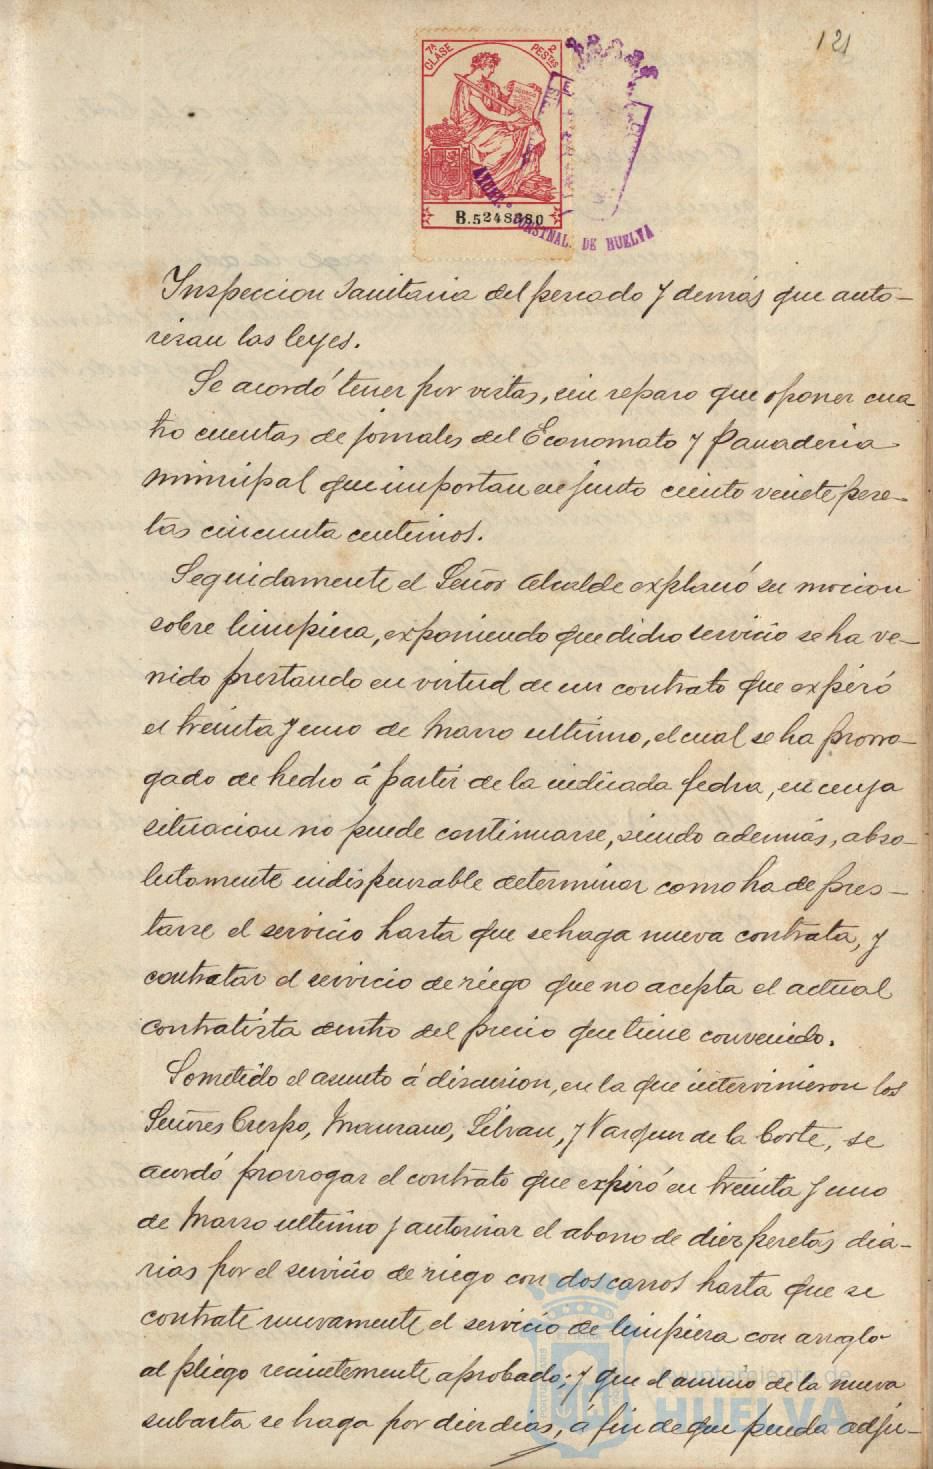 121
7ª CLASE 2 PESTAS
B.5248880
AYUNT.º CONSTNAL. DE HUELVA
Inspeccion Sanitaria del pescado y demás que auto-
rizan las leyes.
Se acordó tener por vistas, sin reparo que oponer cua
tro cuentas de jornales del Economato y Panaderia
municipal que importan en junto ciento veinte pese-
tas cincuenta centimos.
Seguidamente el Señor Alcalde explanó su mocion
sobre limpieza, exponiendo que dicho servicio se ha ve-
nido prestando en virtud de un contrato que expiró
el treinta y uno de Marzo ultimo, el cual se ha prorro-
gado de hecho á partir de la indicada fecha, en cuya
situacion no puede continuarse, siendo además, abso-
lutamente indispensable determinar como ha de pres-
tarse el servicio hasta que se haga nueva contrata, y
contratar el servicio de riego que no acepta el actual
contratista dentro del precio que tiene convenido.
Sometido el asunto á discusion, en la que intervinieron los
Señores Crespo, Manzano, Silvan, y Vazquez de la Corte, se
acordó prorrogar el contrato que expiró en treinta y uno
de Marzo ultimo y autorizar el abono de diez pesetas dia-
rias por el servicio de riego con dos carros hasta que se
contrate nuevamente el servicio de limpieza con arreglo
al pliego recientemente aprobado; y que el anuncio de la nueva
subasta se haga por diez dias, á fin de que pueda adju-
Ayuntamiento de
HUELVA